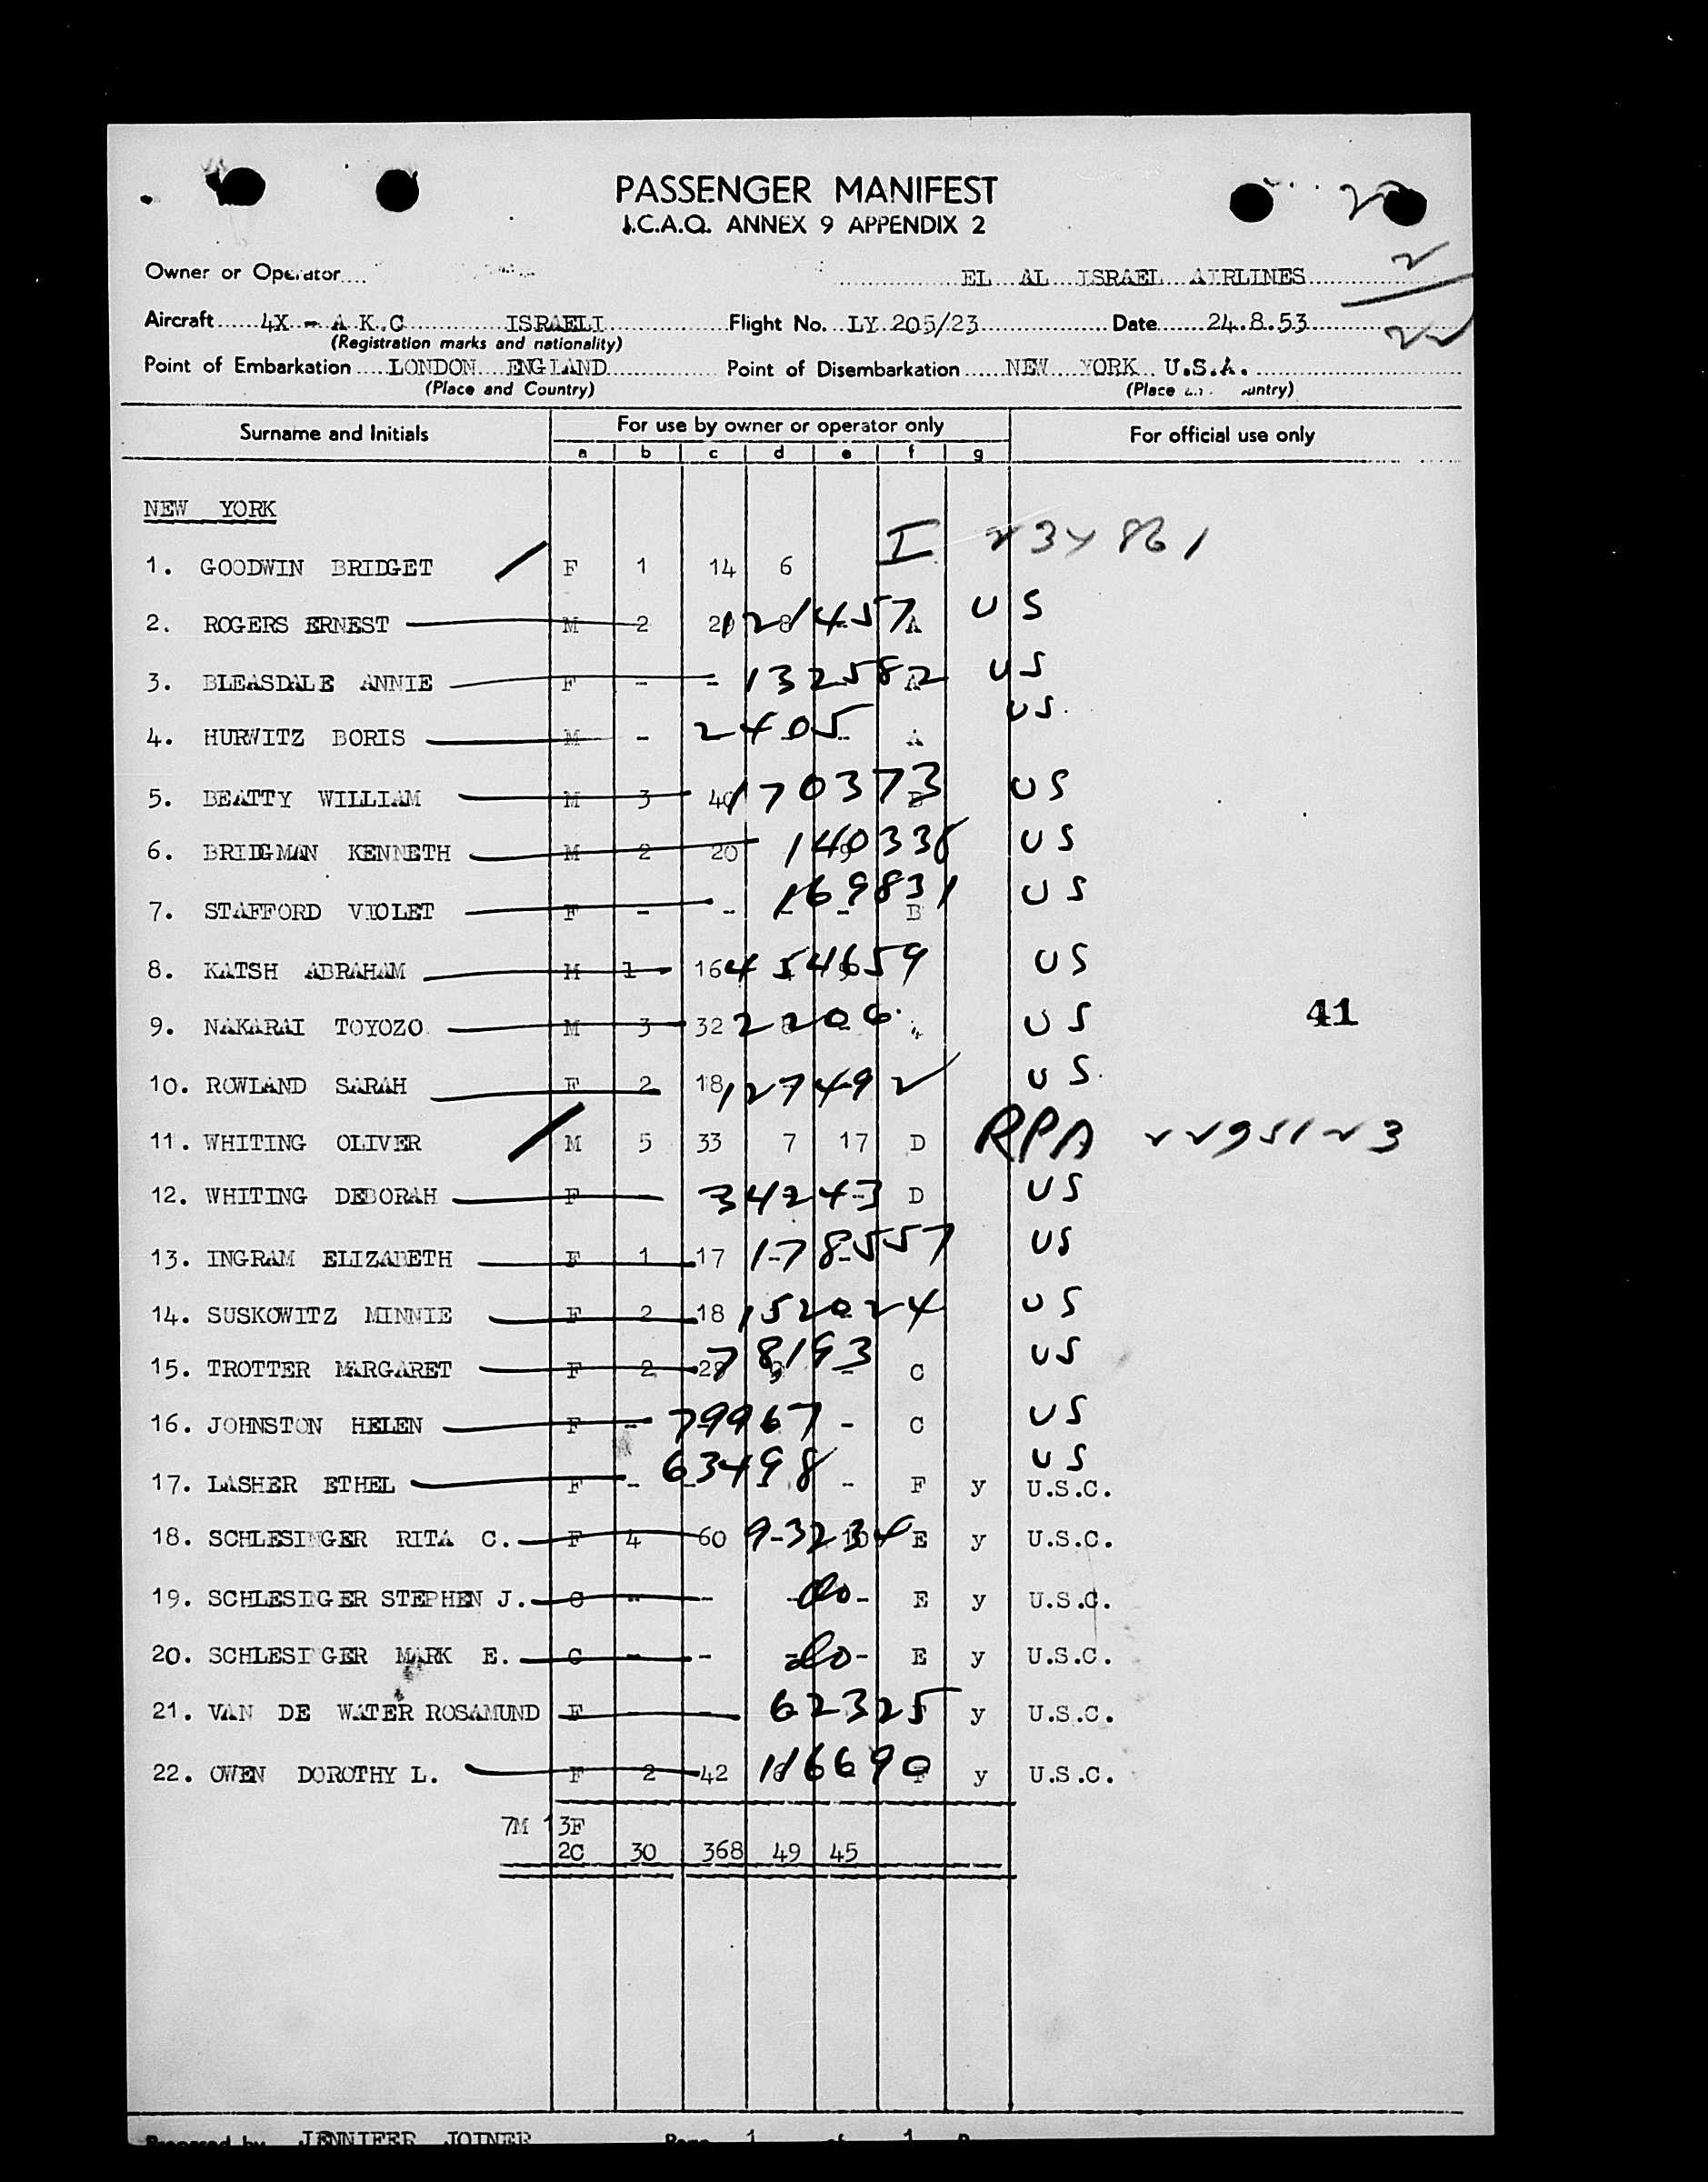 PASSENGER MANIFEST
I.C.A.O. ANNEX 9 APPENDIX 2
Owner or Operator.... EL AL ISRAEL AIRLINES
Aircraft 4X - A K.C ISRAELI Flight No. LY 205/23 Date 24.8.53
(Registration marks and nationality)
Point of Embarkation LONDON ENGLAND Point of Disembarkation NEW YORK U.S.A.
(Place and Country) (Place
Surname and Initials For use by owner or operator only For official use only
a b c d e f g
NEW YORK
1. GOODWIN BRIDGET F 1 14 6 I
2. ROGERS ERNEST M 2 121457 A US
3. BLEASDALE ANNIE F - - 132582 A US
4. HURWITZ BORIS M - 2405 A US.
5. BEATTY WILLIAM M 3 40 170373 US
6. BRIDGMAN KENNETH M 2 20 US
7. STAFFORD VIOLET F - - 169831 B US
8. KATSH ABRAHAM M 1 16 454659 US
9. NAKARAI TOYOZO M 3 32 2206 US
41
10. ROWLAND SARAH F 2 18 127492 US.
11. WHITING OLIVER M 5 33 7 17 D RPA 2295123
12. WHITING DEBORAH F - 342243 D US
13. INGRAM ELIZABETH F 1 17 178557 US
14. SUSKOWITZ MINNIE F 2 18 152024 US
15. TROTTER MARGARET F 2 28 78193 - C US
16. JOHNSTON HELEN F - 79967 - C US
17. LASHER ETHEL F - 63498 - F y US U.S.C.
18. SCHLESINGER RITA C. F 4 60 93234 E y U.S.C.
19. SCHLESINGER STEPHEN J. C - - do - E y U.S.C.
20. SCHLESINGER MARK E. C - - do - E y U.S.C.
21. VAN DE WATER ROSAMUND F - - 62325 y U.S.C.
22. OWEN DOROTHY L. F 2 42 116690 F y U.S.C.
7M 13F
2C 30 368 49 45
Prepared by JENNIFER JOINER Page 1 of 1